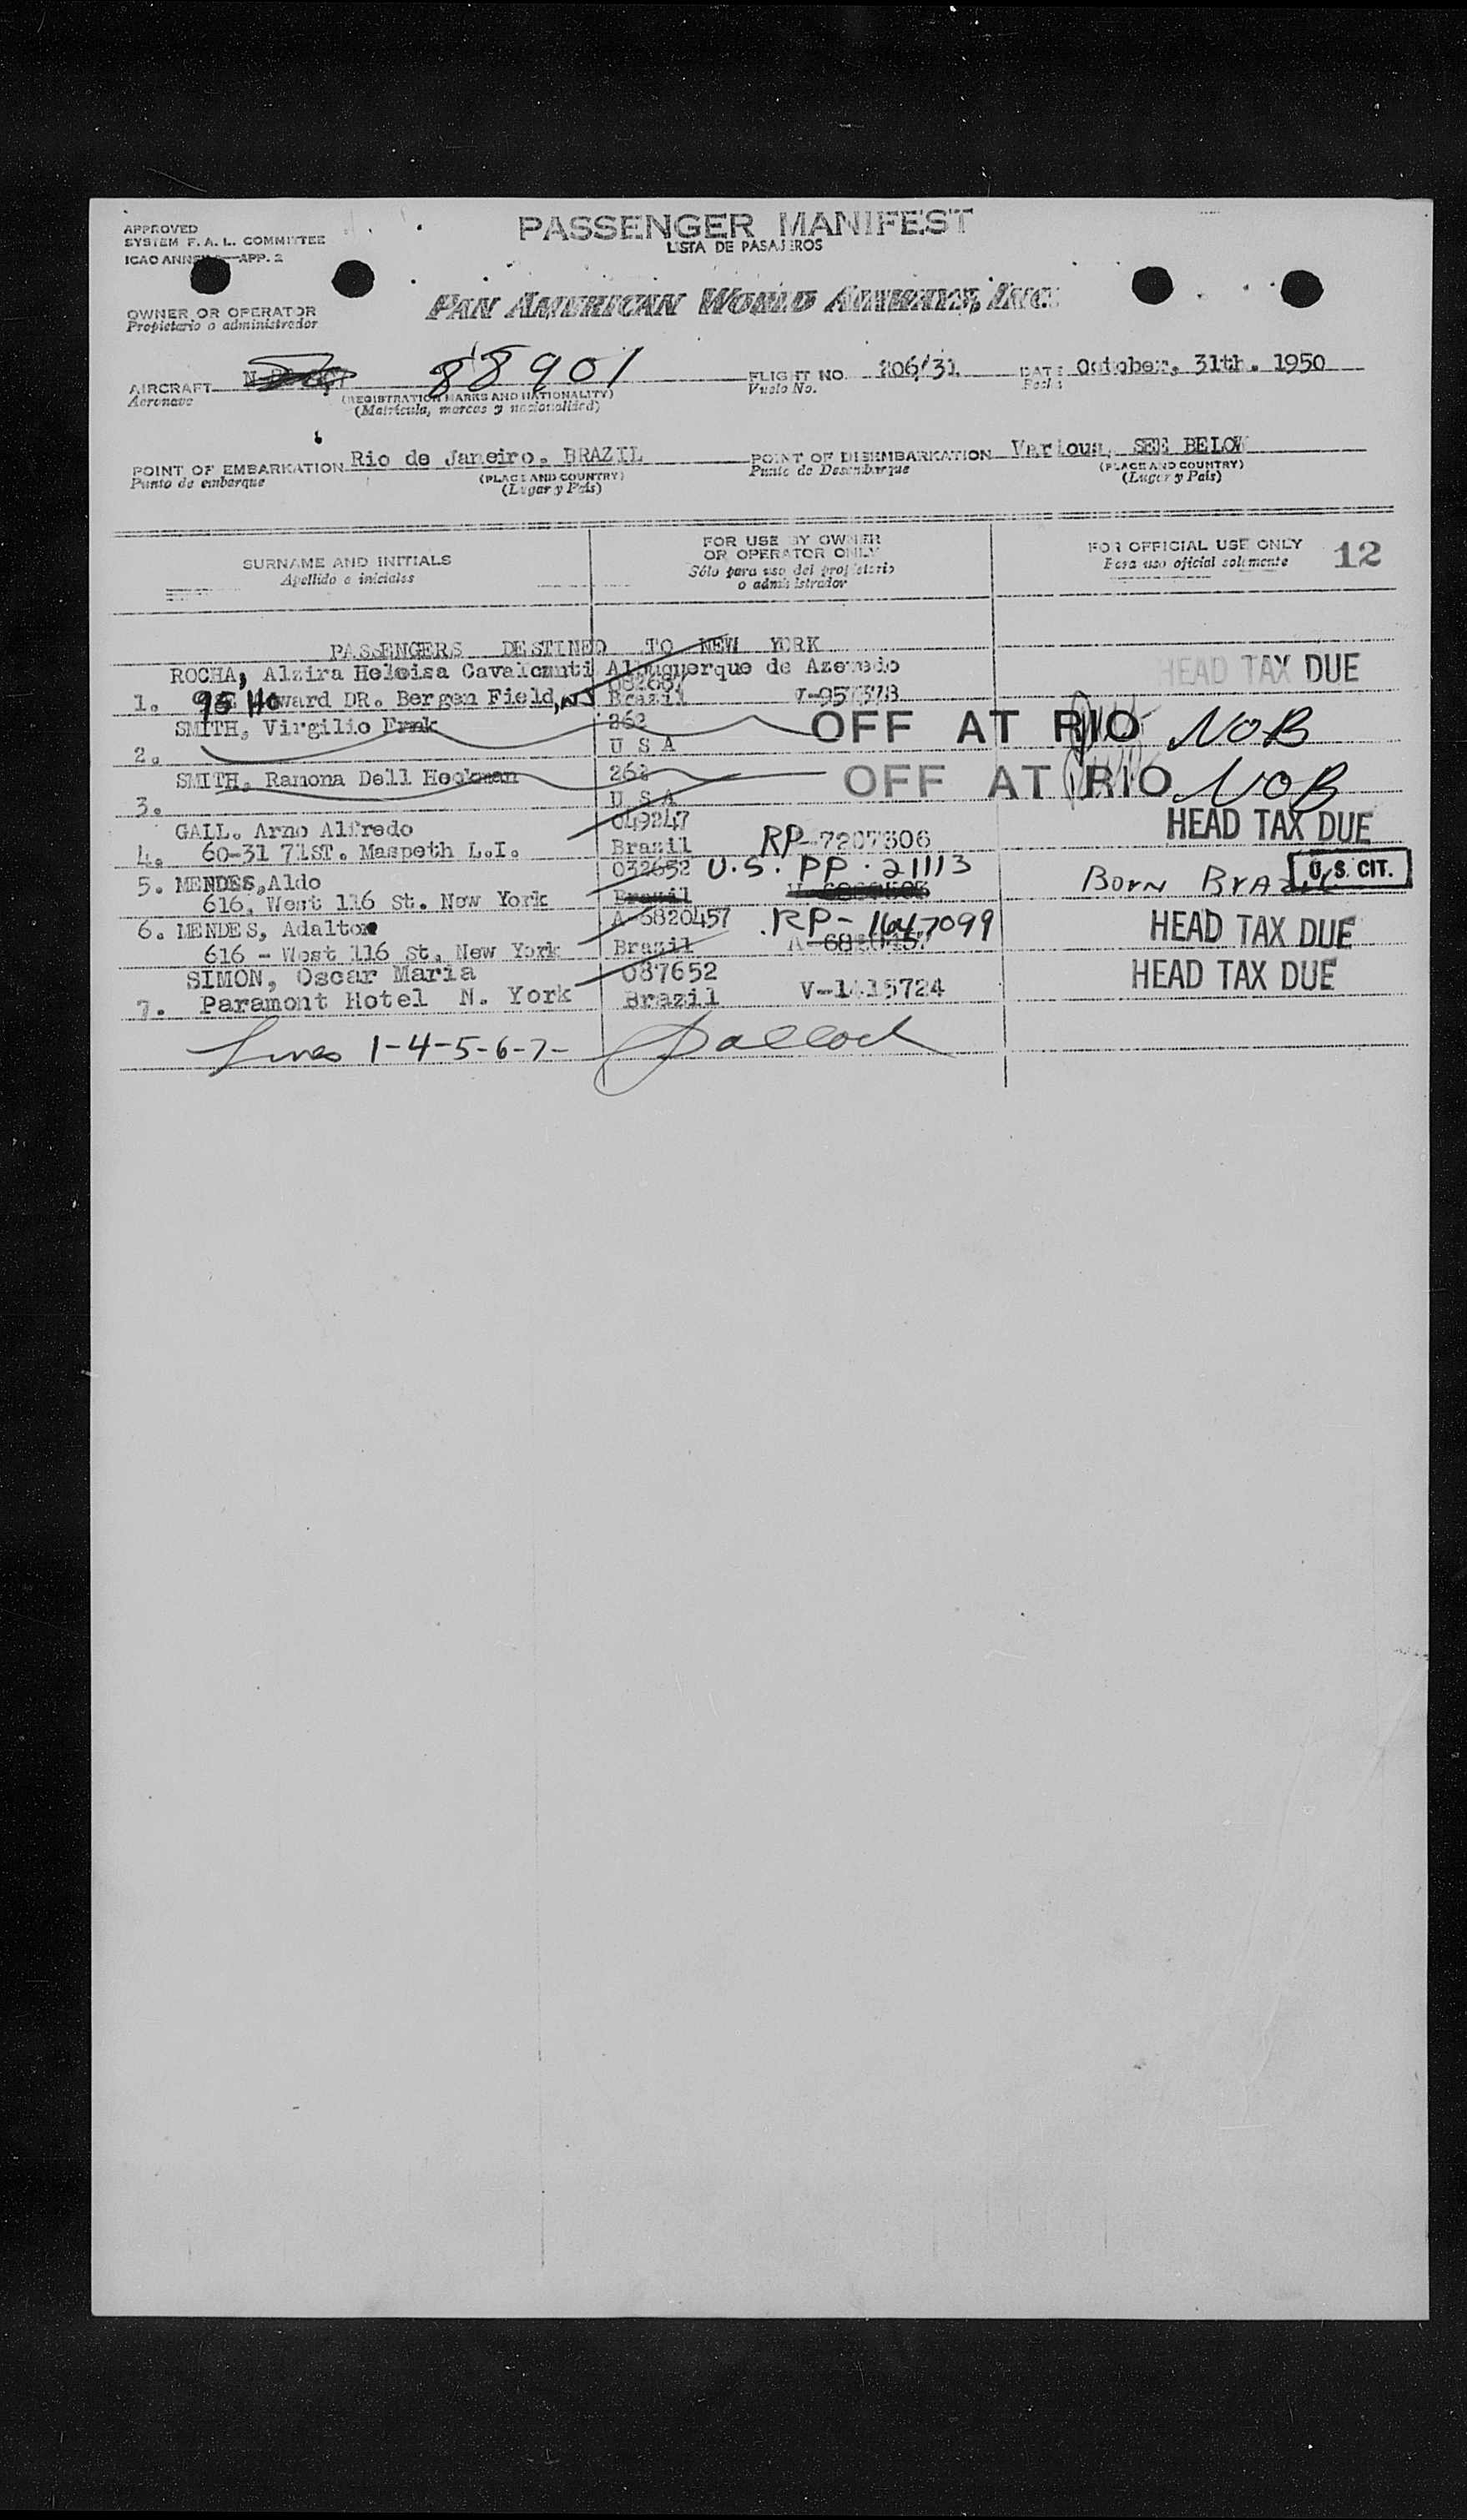 APPROVED
SYSTEM F. A. L. COMMITTEE
ICAO ANNEX APP. 2
PASSENGER MANIFEST
LISTA DE PASAJEROS
OWNER OR OPERATOR
Propietario o administrador
PAN AMERICAN WORLD AIRWAYS, INC.
AIRCRAFT 88901
Aeronave
(REGISTRATION MARKS AND NATIONALITY)
(Matrícula, marcas y nacionalidad)
FLIGHT NO. 206/31
Vuelo No.
DATE October, 31th. 1950
Fecha
POINT OF EMBARKATION Rio de Janeiro, BRAZIL
Punto de embarque
(PLACE AND COUNTRY)
(Lugar y País)
POINT OF DISEMBARKATION Various, SEE BELOW
Punto de Desembarque
(PLACE AND COUNTRY)
(Lugar y País)
SURNAME AND INITIALS
Apellido e iniciales
FOR USE BY OWNER
OR OPERATOR ONLY
Sólo para uso del propietario
o administrador
FOR OFFICIAL USE ONLY 12
Para uso oficial solamente
PASSENGERS DESTINED TO NEW YORK
ROCHA, Alzira Heloisa Cavalcanti Albuquerque de Azevedo HEAD TAX DUE
1. 95 Howard DR. Bergen Field, NJ Brazil
SMITH, Virgilio 262 OFF AT RIO NOB
2. U S A
SMITH, Ramona Dell Heckman 262 OFF AT RIO NOB
3. U S A
GALL. Arno Alfredo 049247 HEAD TAX DUE
4. 60-31 71ST. Maspeth L.I. Brazil RP-7207306
5. MENDES, Aldo 032652 U.S. PP. 21113 BORN BRAZIL U.S. CIT.
616, West 116 St. New York Brazil
6. MENDES, Adalton A-6820457 RP-1647099 HEAD TAX DUE
616 - West 116 St. New York Brazil A-6820457
SIMON, Oscar Maria 087652 HEAD TAX DUE
7. Paramont Hotel N. York Brazil V-1415724
Lines 1-4-5-6-7-